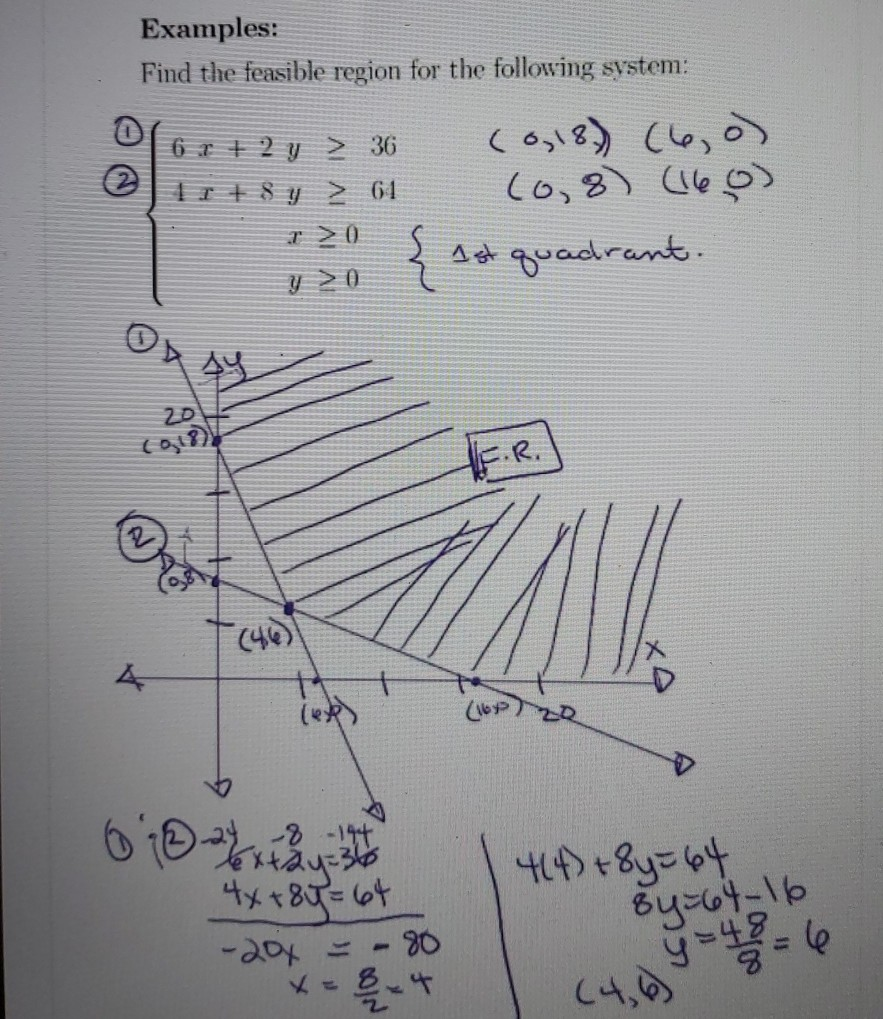 Examples:
Find the feasible region for the following system:
① 6 x + 2 y ≥ 36 (0,18) (6,0)
② 4 x + 8 y ≥ 64 (0,8) (16,0)
x ≥ 0
y ≥ 0
{ 1st quadrant.
①
y
20
(0,18)
F.R.
②
(0,8)
(4,6)
x
(6,0)
(16,0) 20
① ② -24 -8 -144
6x+2y=36
4x+8y=64
-20x = -80
x = 8/2 = 4
4(4)+8y=64
8y=64-16
y=48/8=6
(4,6)